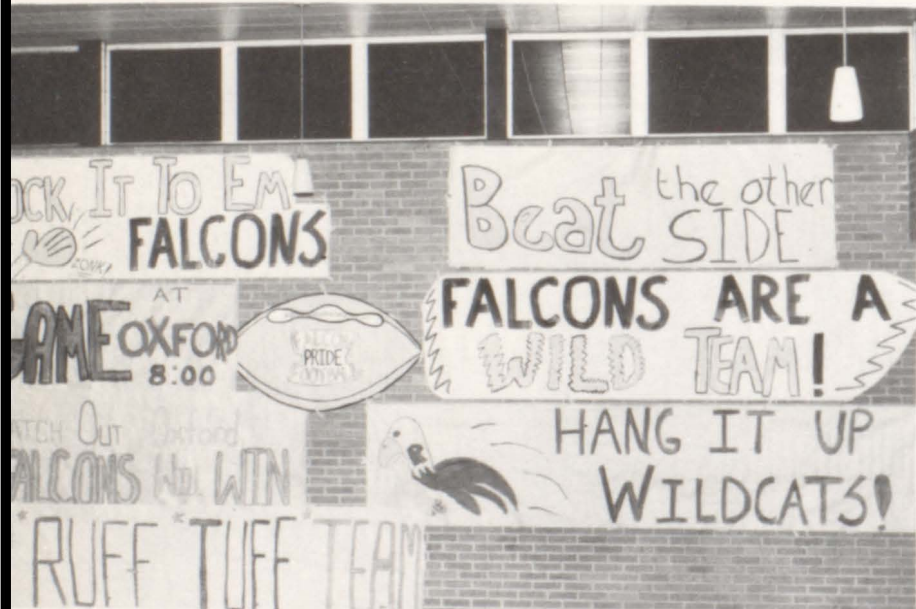 OCK IT TO EM
ZONK!
FALCONS
Beat the other
SIDE
GAME AT
OXFORD
8:00
FALCON
PRIDE
FALCONS ARE A
WILD TEAM!
ATCH OUT Oxford
FALCONS Will WIN
HANG IT UP
WILDCATS!
"RUFF "TUFF" TEAM